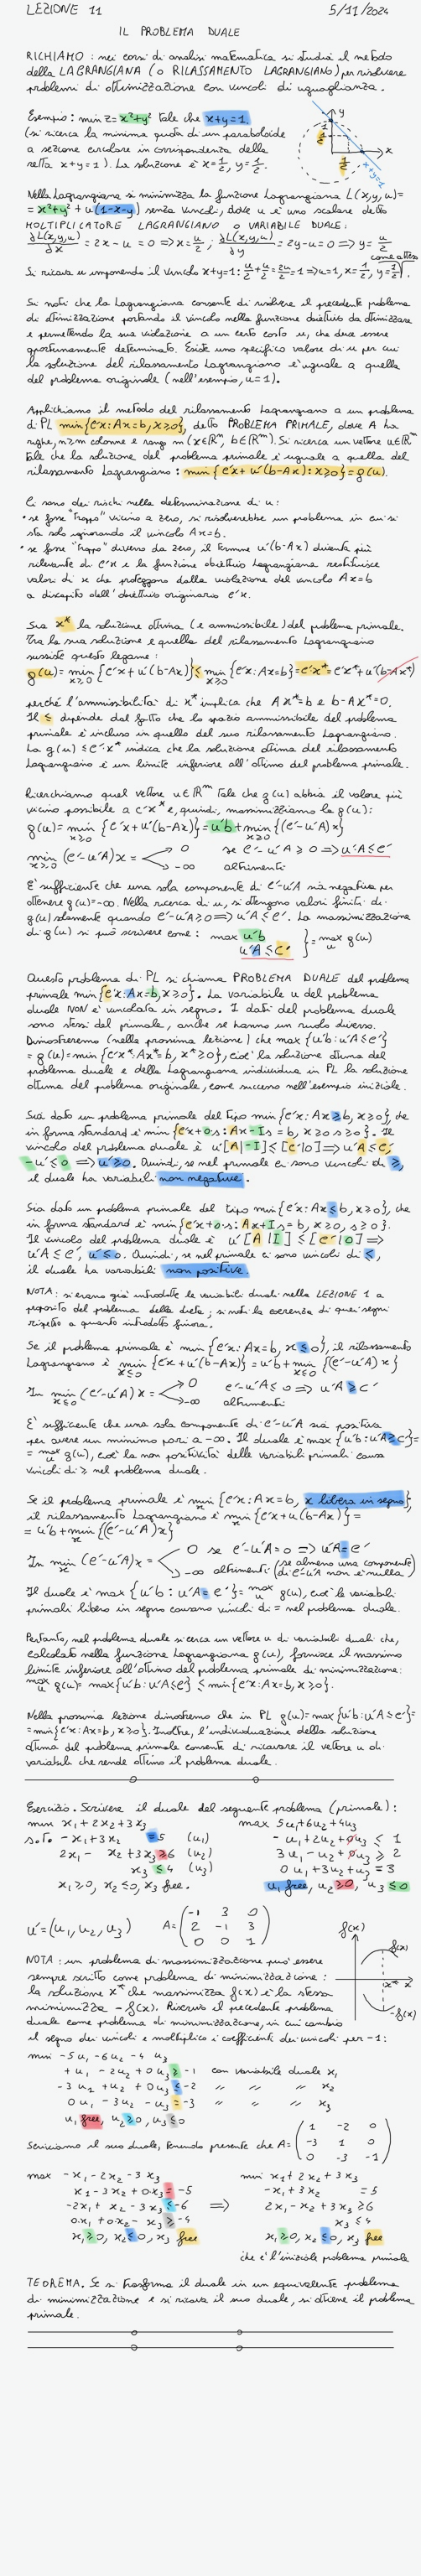 LEZIONE 11 5/11/2024
IL PROBLEMA DUALE
RICHIAMO: nei corsi di analisi matematica si studia il metodo
della LAGRANGIANA (o RILASSAMENTO LAGRANGIANO) per risolvere
problemi di ottimizzazione con vincoli di uguaglianza.
Esempio: min z = x²+y² tale che x+y=1
(si ricerca la minima quota di un paraboloide
a sezione circolare in corrispondenza della
retta x+y=1). La soluzione è x=1/2, y=1/2.
y
1/2
x
1/2
x+y=1
Nella Lagrangiana si minimizza la funzione Lagrangiana L(x,y,u)=
= x²+y² + u(1-x-y) senza vincoli, dove u è uno scalare detto
MOLTIPLICATORE LAGRANGIANO o VARIABILE DUALE:
∂L(x,y,u)/∂x = 2x-u = 0 => x = u/2, ∂L(x,y,u)/∂y = 2y-u = 0 => y = u/2
Si ricava u imponendo il vincolo x+y=1: u/2+u/2=2u/2=1 => u=1, x=1/2, y=1/2, come atteso.
Si noti che la Lagrangiana consente di risolvere il precedente problema
di ottimizzazione portando il vincolo nella funzione obiettivo da ottimizzare
e permettendo la sua violazione a un certo costo u, che deve essere
opportunamente determinato. Esiste uno specifico valore di u per cui
la soluzione del rilassamento Lagrangiano è uguale a quella
del problema originale (nell'esempio, u=1).
Applichiamo il metodo del rilassamento Lagrangiano a un problema
di PL min{c'x: Ax=b, x≥0}, detto PROBLEMA PRIMALE, dove A ha m
righe, n≥m colonne e rango m (x∈ℝⁿ, b∈ℝᵐ). Si ricerca un vettore u∈ℝᵐ
tale che la soluzione del problema primale è uguale a quella del
rilassamento Lagrangiano: min{c'x+u'(b-Ax): x≥0}=g(u).
Ci sono dei rischi nella determinazione di u:
• se fosse "troppo" vicino a zero, si risolverebbe un problema in cui si
sta solo ignorando il vincolo Ax=b.
• se fosse "troppo" diverso da zero, il termine u'(b-Ax) diventa più
rilevante di c'x e la funzione obiettivo Lagrangiana restituisce
valori di x che proteggono dalla violazione del vincolo Ax=b
a discapito dell'obiettivo originario c'x.
Sia x* la soluzione ottima (e ammissibile) del problema primale.
Tra la sua soluzione e quella del rilassamento Lagrangiano
sussiste questo legame:
g(u)= min x≥0 {c'x+u'(b-Ax)} ≤ min x≥0 {c'x: Ax=b} = c'x* = c'x*+u'(b-Ax*)
perché l'ammissibilità di x* implica che Ax*=b e b-Ax*=0.
Il ≤ dipende dal fatto che lo spazio ammissibile del problema
primale è incluso in quello del suo rilassamento Lagrangiano.
La g(u)≤c'x* indica che la soluzione ottima del rilassamento
Lagrangiano è un limite inferiore all'ottimo del problema primale.
Ricerchiamo quel vettore u∈ℝᵐ tale che g(u) abbia il valore più
vicino possibile a c'x* e, quindi, massimizziamo la g(u):
g(u)= min x≥0 {c'x+u'(b-Ax)} = u'b + min x≥0 {(c'-u'A)x}
min x≥0 (c'-u'A)x = 0 se c'-u'A≥0 => u'A≤c'
-∞ altrimenti
È sufficiente che una sola componente di c'-u'A sia negativa per
ottenere g(u)=-∞. Nella ricerca di u, si ottengono valori finiti di
g(u) solamente quando c'-u'A≥0 => u'A≤c'. La massimizzazione
di g(u) si può scrivere come: max u'b
u'A≤c' } = max u g(u)
Questo problema di PL si chiama PROBLEMA DUALE del problema
primale min{c'x: Ax=b, x≥0}. La variabile u del problema
duale NON è vincolata in segno. I dati del problema duale
sono stessi del primale, anche se hanno un ruolo diverso.
Dimostreremo (nella prossima lezione) che max{u'b: u'A≤c'}
= g(u)=min{c'x*: Ax*=b, x*≥0}, cioè la soluzione ottima del
problema duale e della Lagrangiana individua in PL la soluzione
ottima del problema originale, come successo nell'esempio iniziale.
Sia dato un problema primale del tipo min{c'x: Ax≥b, x≥0}, che
in forma standard è min{c'x+0·s: Ax-Is=b, x≥0, s≥0}. Il
vincolo del problema duale è u'[A|-I]≤[c'|0] => u'A≤c',
-u'≤0 => u'≥0. Quindi, se nel primale ci sono vincoli di ≥,
il duale ha variabili non negative.
Sia dato un problema primale del tipo min{c'x: Ax≤b, x≥0}, che
in forma standard è min{c'x+0·s: Ax+Is=b, x≥0, s≥0}.
Il vincolo del problema duale è u'[A|I]≤[c'|0] =>
u'A≤c', u'≤0. Quindi, se nel primale ci sono vincoli di ≤,
il duale ha variabili non positive.
NOTA: si erano già introdotte le variabili duali nella LEZIONE 1 a
proposito del problema della dieta; si noti la coerenza di quei segni
rispetto a quanto introdotto finora.
Se il problema primale è min{c'x: Ax=b, x≤0}, il rilassamento
Lagrangiano è min x≤0 {c'x+u'(b-Ax)} = u'b + min x≤0 {(c'-u'A)x}
In min x≤0 (c'-u'A)x = 0 c'-u'A≤0 => u'A≥c'
-∞ altrimenti
È sufficiente che una sola componente di c'-u'A sia positiva
per avere un minimo pari a -∞. Il duale è max{u'b: u'A≥c'}=
= max u g(u), cioè la non positività delle variabili primali causa
vincoli di ≥ nel problema duale.
Se il problema primale è min x {c'x: Ax=b, x libera in segno},
il rilassamento Lagrangiano è min x {c'x+u(b-Ax)}=
= u'b+min x {(c'-u'A)x}
In min x (c'-u'A)x = 0 se c'-u'A=0 => u'A=c'
-∞ altrimenti (se almeno una componente di c'-u'A non è nulla)
Il duale è max{u'b: u'A=c'}=max u g(u), cioè le variabili
primali libere in segno causano vincoli di = nel problema duale.
Pertanto, nel problema duale si cerca un vettore u di variabili duali che,
calcolato nella funzione Lagrangiana g(u), fornisce il massimo
limite inferiore all'ottimo del problema primale di minimizzazione:
max u g(u)=max{u'b: u'A≤c'} ≤ min{c'x: Ax=b, x≥0}.
Nella prossima lezione dimostremo che in PL g(u)=max{u'b: u'A≤c'}=
=min{c'x: Ax=b, x≥0}. Inoltre, l'individuazione della soluzione
ottima del problema primale consente di ricavare il vettore u di
variabili che rende ottimo il problema duale.
Esercizio. Scrivere il duale del seguente problema (primale):
min x₁+2x₂+3x₃ max 5u₁+6u₂+4u₃
s.to -x₁+3x₂ =5 (u₁) -u₁+2u₂+0u₃ ≤ 1
2x₁ - x₂+3x₃≥6 (u₂) 3u₁-u₂+0u₃ ≥ 2
x₃≤4 (u₃) 0u₁+3u₂+u₃ = 3
x₁≥0, x₂≤0, x₃ free. u₁ free, u₂≥0, u₃≤0
u'=(u₁,u₂,u₃) A=
-1 3 0
2 -1 3
0 0 1
f(x)
f(x)
x* x
-f(x)
NOTA: un problema di massimizzazione può essere
sempre scritto come problema di minimizzazione:
la soluzione x* che massimizza f(x) è la stessa
minimizza -f(x). Riscrivo il precedente problema
duale come problema di minimizzazione, in cui cambio
il segno dei vincoli e moltiplico i coefficienti dei vincoli per -1:
min -5u₁-6u₂-4u₃
+u₁-2u₂+0u₃≥-1 con variabile duale x₁
-3u₁+u₂+0u₃≤-2 " " " x₂
0u₁-3u₂-u₃=-3 " " " x₃
u₁ free, u₂≥0, u₃≤0
Scriviamo il suo duale, tenendo presente che A=
1 -2 0
-3 1 0
0 -3 -1
max -x₁-2x₂-3x₃ min x₁+2x₂+3x₃
x₁-3x₂+0x₃=-5 -x₁+3x₂ =5
-2x₁+x₂-3x₃≤-6 => 2x₁-x₂+3x₃≥6
0x₁+0x₂-x₃≥-4 x₃≤4
x₁≥0, x₂≤0, x₃ free x₁≥0, x₂≤0, x₃ free
che è l'iniziale problema primale
TEOREMA. Se si trasforma il duale in un equivalente problema
di minimizzazione e si ricava il suo duale, si ottiene il problema
primale.